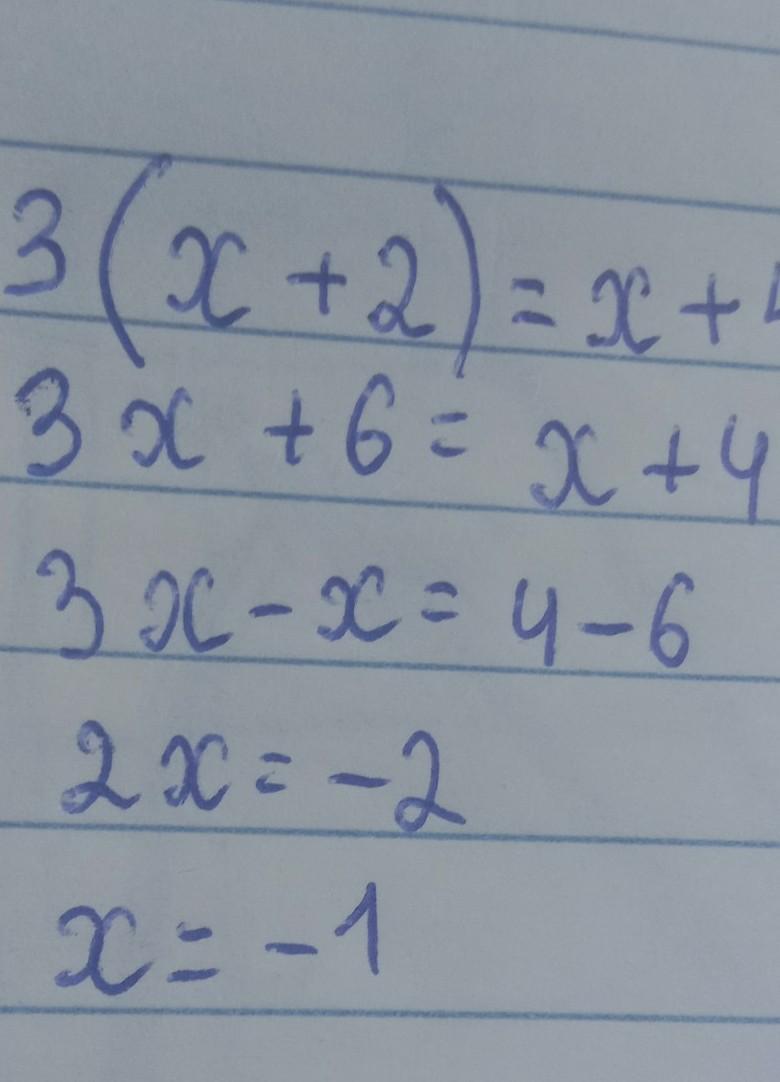 3(x+2)=x+
3x+6=x+4
3x-x=4-6
2x=-2
x=-1